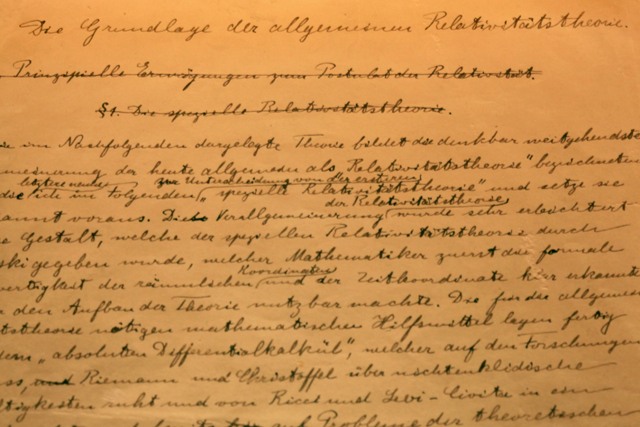 Die Grundlage der allgemeinen Relativitätstheorie.
Prinzipielle Erwägungen zum Postulat der Relativität.
§1. Die spezielle Relativitätstheorie.
im Nachfolgenden dargelegte Theorie bildet die denkbar weitgehendste
der heute allgemein als „Relativitätstheorie" bezeichneten
letztere nenne zur Unterscheidung von der ersteren
die ich im Folgenden „spezielle Relativitätstheorie" und setze sie
der Relativitätstheorie
annt voraus. Die Verallgemeinerung wurde sehr erleichtert
Gestalt, welche der speziellen Relativitätstheorie durch
ski gegeben wurde, welcher Mathematiker zuerst die formale
Koordinaten
wertigkeit der räumlichen und der Zeitkoordinate klar erkannte
den Aufbau der Theorie nutzbar machte. Die für die allgemeine
tstheorie nötigen mathematischen Hilfsmittel lagen fertig
dem „absoluten Differentialkalkül", welcher auf den Forschungen
ss, und Riemann und Christoffel über nichteuklidische
tigkeiten ruht und von Ricci und Levi-Civita in ein
auf Probleme der theoretischen